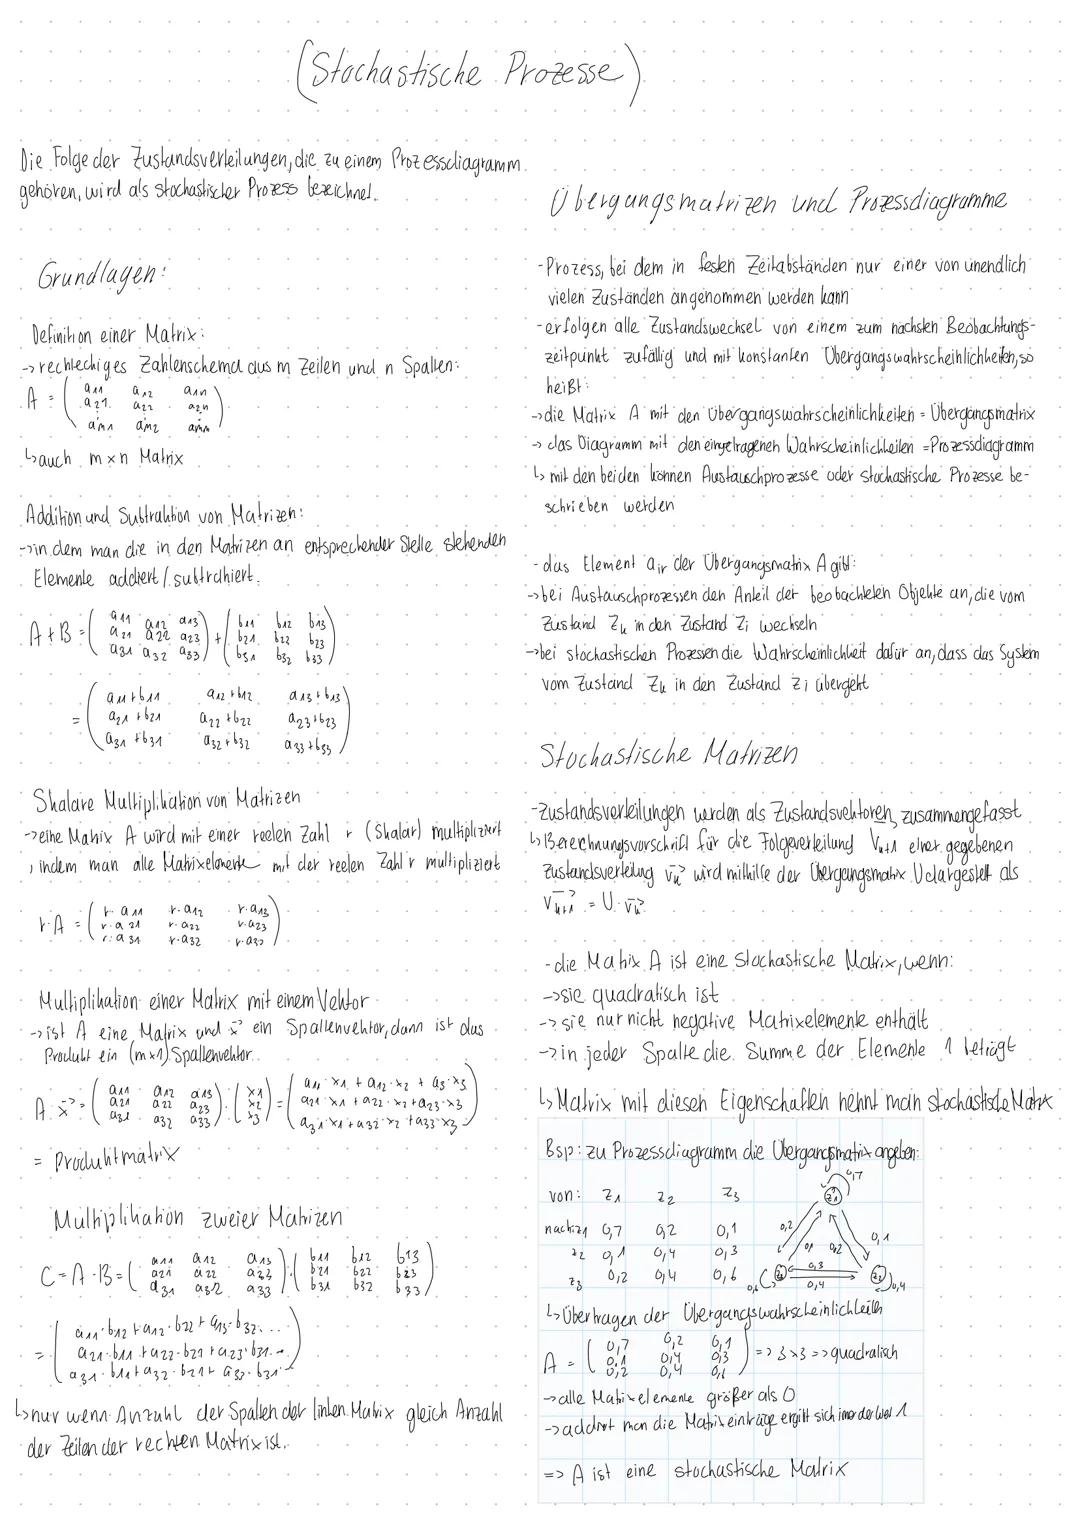 (Stochastische Prozesse)
Die Folge der Zustandsverteilungen, die zu einem Prozessdiagramm
gehören, wird als stochastischer Prozess bezeichnet.
Grundlagen:
Definition einer Matrix:
-> rechteckiges Zahlenschema aus m Zeilen und n Spalten:
A = ( a11 a12 a1n
a21 a22 a2n
am1 am2 amn )
↳ auch m×n Matrix
Addition und Subtraktion von Matrizen:
-> in dem man die in den Matrizen an entsprechender Stelle stehenden
Elemente addiert / subtrahiert.
A + B = ( a11 a12 a13 ) + ( b11 b12 b13 )
a21 a22 a23 b21 b22 b23
a31 a32 a33 b31 b32 b33
= ( a11+b11 a12+b12 a13+b13
a21+b21 a22+b22 a23+b23
a31+b31 a32+b32 a33+b33 )
Skalare Multiplikation von Matrizen
-> eine Matrix A wird mit einer reelen Zahl r (Skalar) multipliziert
, indem man alle Matrixelemente mit der reelen Zahl r multipliziert
r·A = ( r·a11 r·a12 r·a13
r·a21 r·a22 r·a23
r·a31 r·a32 r·a33 )
Multiplikation einer Matrix mit einem Vektor
-> ist A eine Matrix und x⃗ ein Spaltenvektor, dann ist das
Produkt ein (m×1) Spaltenvektor.
A·x⃗ = ( a11 a12 a13 ) · ( x1 ) = ( a11·x1 + a12·x2 + a3·x3 )
a21 a22 a23 x2 a21·x1 + a22·x2 + a23·x3
a31 a32 a33 x3 a31·x1 + a32·x2 + a33·x3
= Produktmatrix
Multiplikation zweier Matrizen
C = A·B = ( a11 a12 a13 ) · ( b11 b12 b13 )
a21 a22 a23 b21 b22 b23
a31 a32 a33 b31 b32 b33
= ( a11·b12 + a12·b22 + a13·b32 ...
a21·b11 + a22·b21 + a23·b31 ...
a31·b11 + a32·b21 + a33·b31 )
↳ nur wenn Anzahl der Spalten der linken Matrix gleich Anzahl
der Zeilen der rechten Matrix ist.
Übergangsmatrizen und Prozessdiagramme
- Prozess, bei dem in festen Zeitabständen nur einer von unendlich
vielen Zuständen angenommen werden kann
- erfolgen alle Zustandswechsel von einem zum nächsten Beobachtungs-
zeitpunkt zufällig und mit konstanten Übergangswahrscheinlichkeiten, so
heißt:
-> die Matrix A mit den Übergangswahrscheinlichkeiten = Übergangsmatrix
-> das Diagramm mit den eingetragenen Wahrscheinlichkeiten = Prozessdiagramm
↳ mit den beiden können Austauschprozesse oder stochastische Prozesse be-
schrieben werden
- das Element aik der Übergangsmatrix A gibt:
-> bei Austauschprozessen den Anteil der beobachteten Objekte an, die vom
Zustand Zk in den Zustand Zi wechseln
-> bei stochastischen Prozessen die Wahrscheinlichkeit dafür an, dass das System
vom Zustand Zk in den Zustand Zi übergeht
Stochastische Matrizen
- Zustandsverteilungen werden als Zustandsvektoren zusammengefasst
↳ Berechnungsvorschrift für die Folgeverteilung Vk+1 einer gegebenen
Zustandsverteilung vk⃗ wird mithilfe der Übergangsmatrix U dargestellt als
vk+1⃗ = U · vk⃗
- die Matrix A ist eine stochastische Matrix, wenn:
-> sie quadratisch ist
-> sie nur nicht negative Matrixelemente enthält
-> in jeder Spalte die Summe der Elemente 1 beträgt
↳ Matrix mit diesen Eigenschaften nennt man stochastische Matrix
Bsp: zu Prozessdiagramm die Übergangsmatrix angeben:
von: z1 z2 z3
nach: z1 0,7 0,2 0,1
z2 0,1 0,4 0,3
z3 0,2 0,4 0,6
0,7
z1
0,2
0,1
0,2
0,1
0,6
z3
0,3
0,4
z2
0,4
↳ Übertragen der Übergangswahrscheinlichkeiten
A = ( 0,7 0,2 0,1
0,1 0,4 0,3
0,2 0,4 0,6 ) => 3×3 => quadratisch
-> alle Matrixelemente größer als 0
-> addiert man die Matrixeinträge ergibt sich immer der Wert 1
=> A ist eine stochastische Matrix